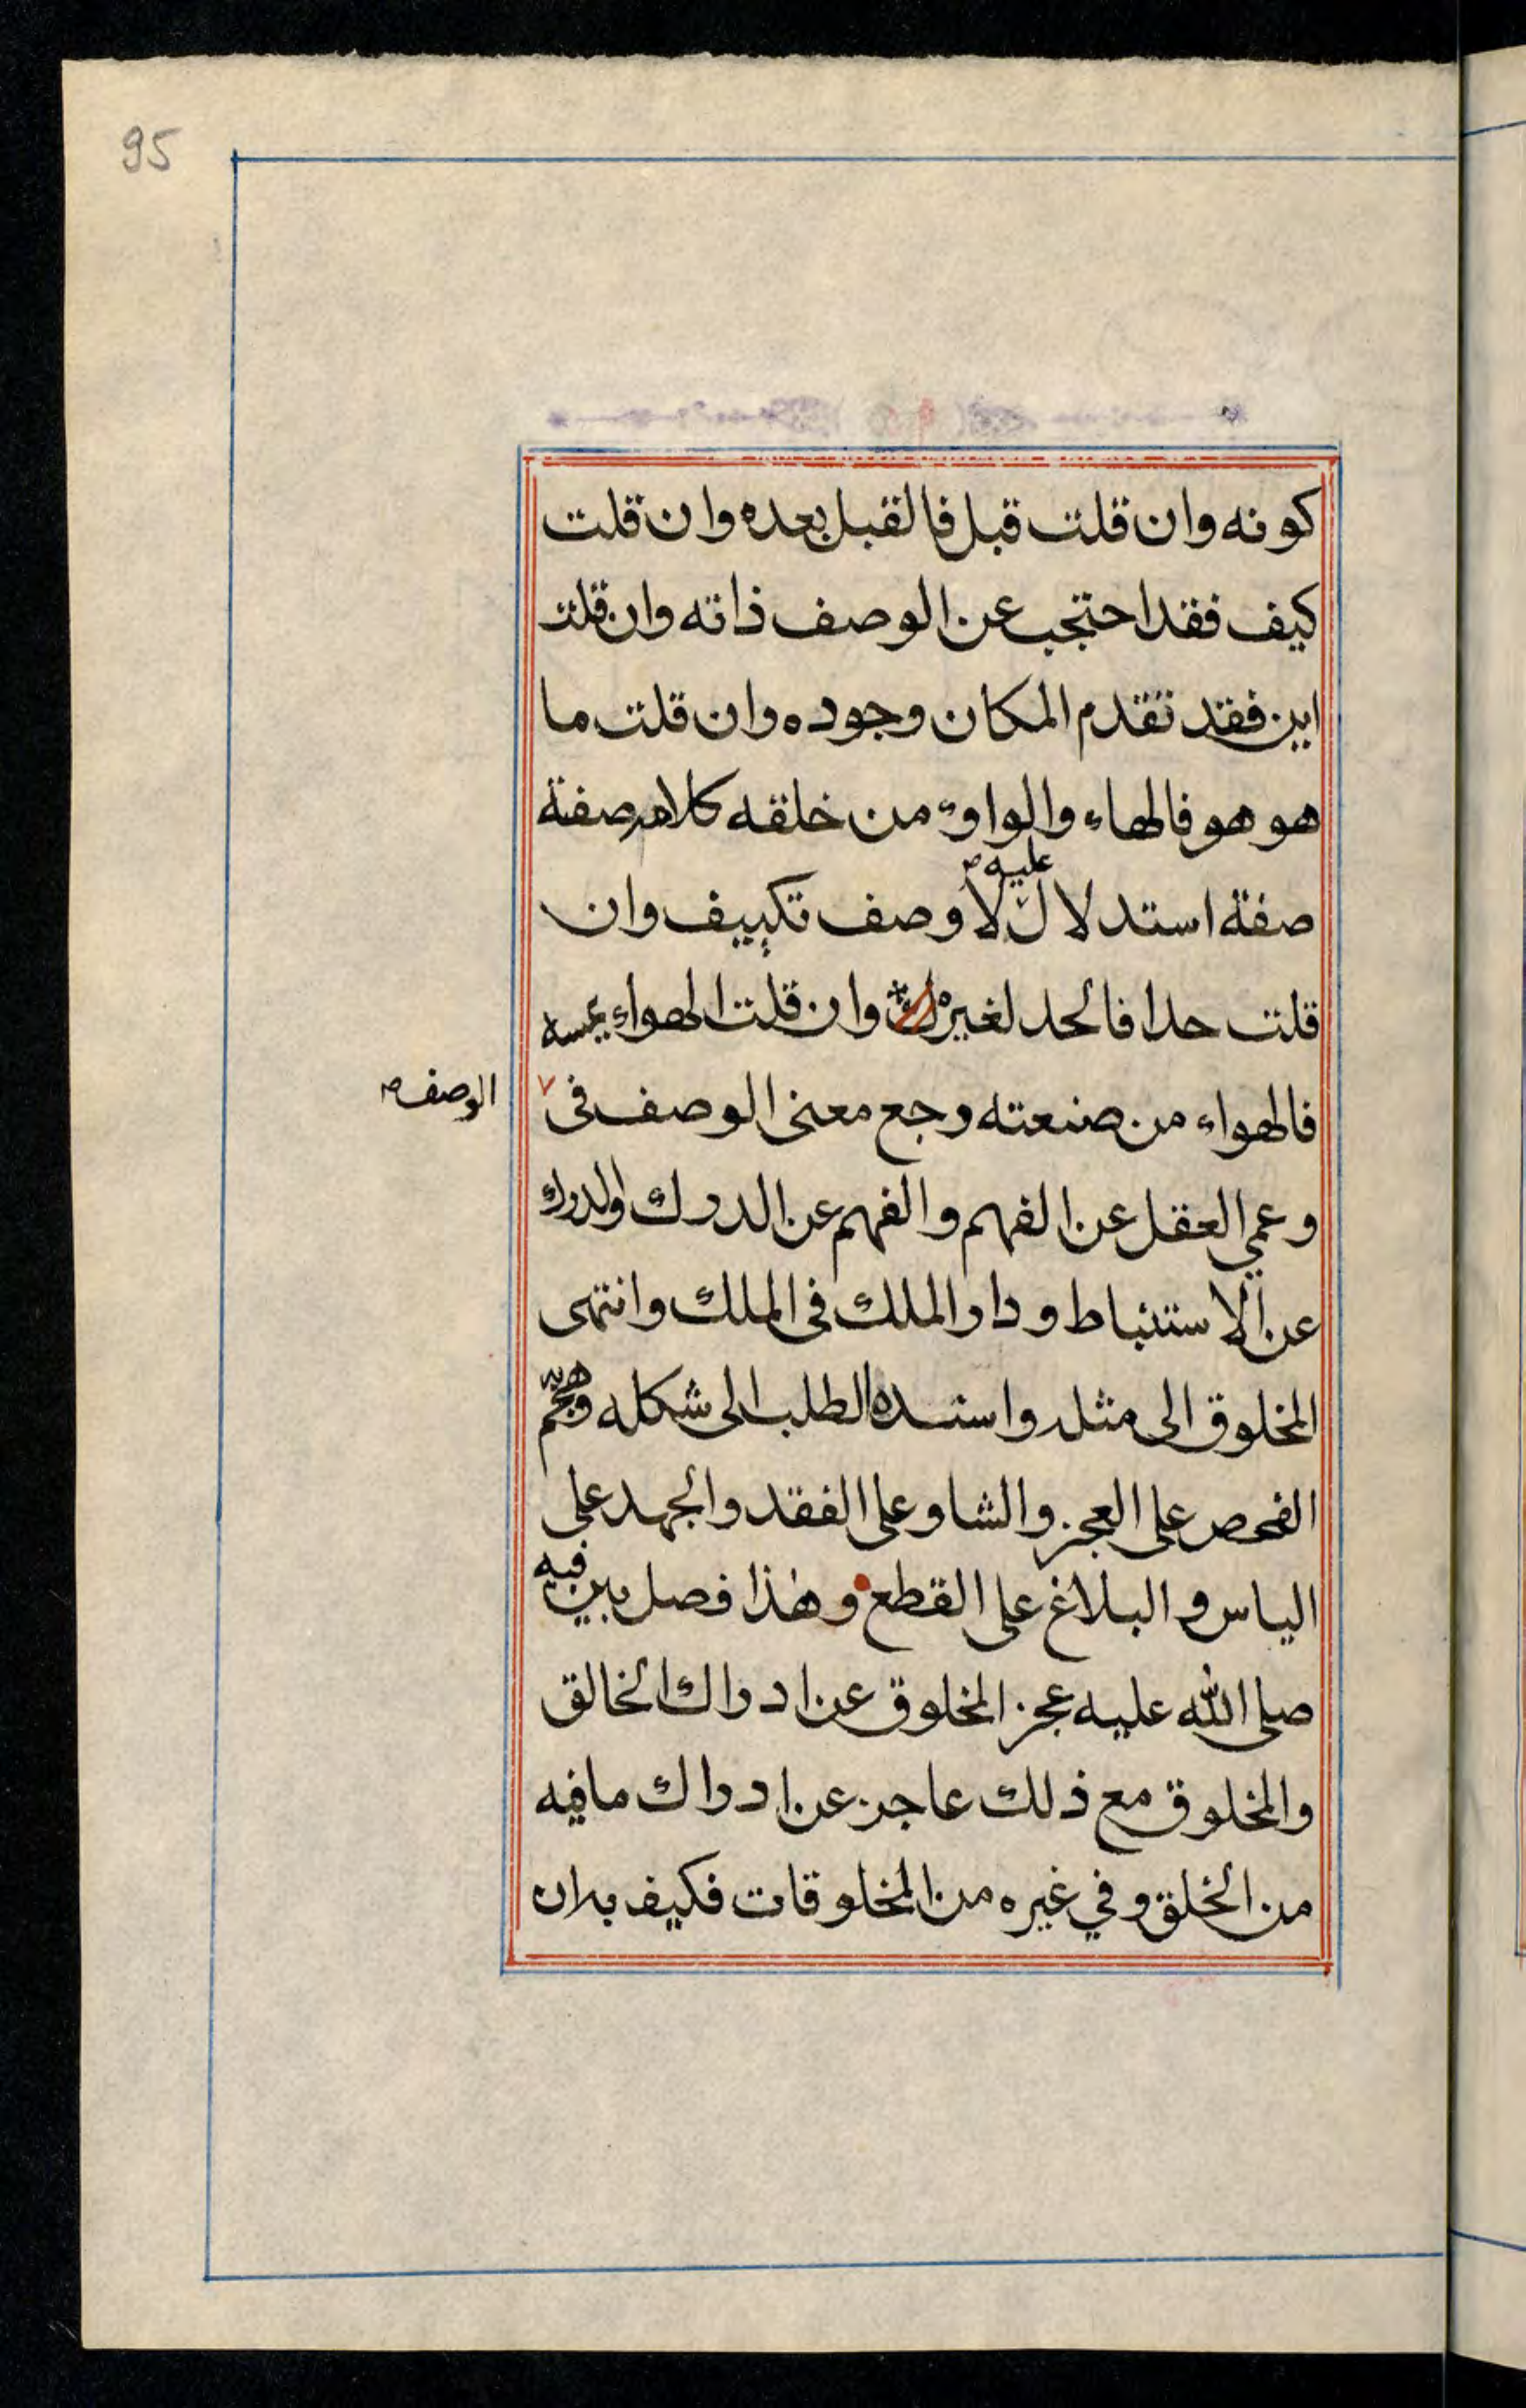 95
كونه وان قلت قبل فالقبل بعده وان قلت
كيف فقد احتجب عن الوصف ذاته وان قلت
اين فقد تقدم المكان وجوده وان قلت ما
هو هو فالهاء والواو من خلقه كلامه صفة
عليه
صفة استدلال لا وصف تكييف وان
قلت حدا فالحد لغيره وان قلت الهواء يمسه
فالهواء من صنعته وجع معنى الوصف فى
الوصف
وعمي العقل عن الفهم والفهم عن الدرك والدرك
عن الاستنباط ودار الملك فى الملك وانتهى
المخلوق الى مثله واسنده الطلب الى شكله وهجم
الفحص على العجز والشاو على الفقد والجهد على
الياس والبلاغ على القطع وهذا فصل بين فيه
صلى الله عليه عجز المخلوق عن ادراك الخالق
والمخلوق مع ذلك عاجز عن ادراك ما فيه
من الخلق وفي غيره من المخلوقات فكيف بدان